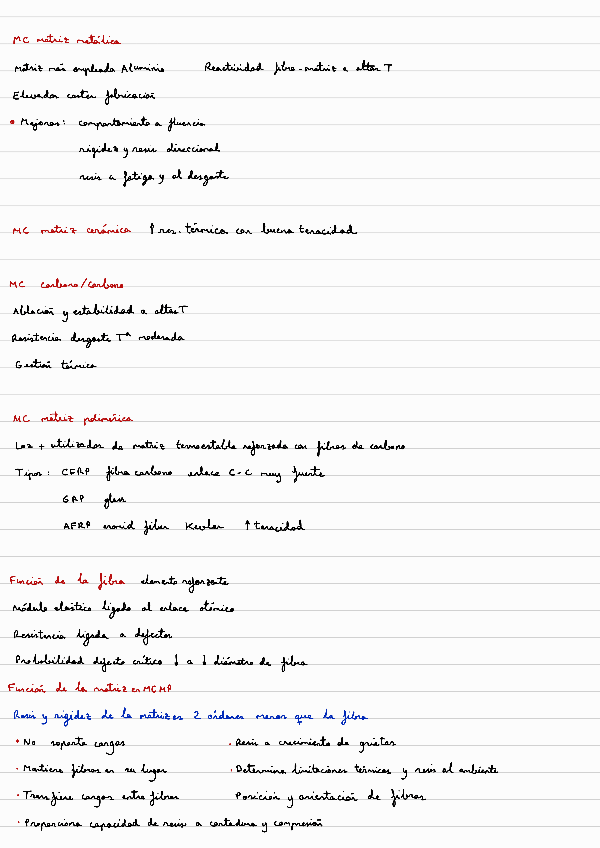 MC matriz metálica
Matriz más empleada Aluminio Reactividad fibra-matriz a altas T
Elevados costes fabricación
• Mejoras: comportamiento a fluencia
rigidez y resis direccional
resis a fatiga y al desgaste
MC matriz cerámica ↑ res. térmica con buena tenacidad
MC carbono/carbono
Ablación y estabilidad a altas T
Resistencia desgaste Tª moderada
Gestión térmica
MC matriz polimérica
Los + utilizados de matriz termoestable reforzada con fibras de carbono
Tipos: CFRP fibra carbono enlace C-C muy fuerte
GRP glass
AFRP aramid fiber Kevlar ↑ tenacidad
Función de la fibra elemento reforzante
Módulo elástico ligado al enlace atómico
Resistencia ligada a defectos
Probabilidad defecto crítico ↓ a ↓ diámetro de fibra
Función de la matriz en MCMP
Resis y rigidez de la matriz es 2 órdenes menor que la fibra
• No soporta cargas • Resis a crecimiento de grietas
• Mantiene fibras en su lugar • Determina limitaciones térmicas y resis al ambiente
• Transfiere cargas entre fibras Posición y orientación de fibras
• Proporciona capacidad de resis a cortadura y compresión